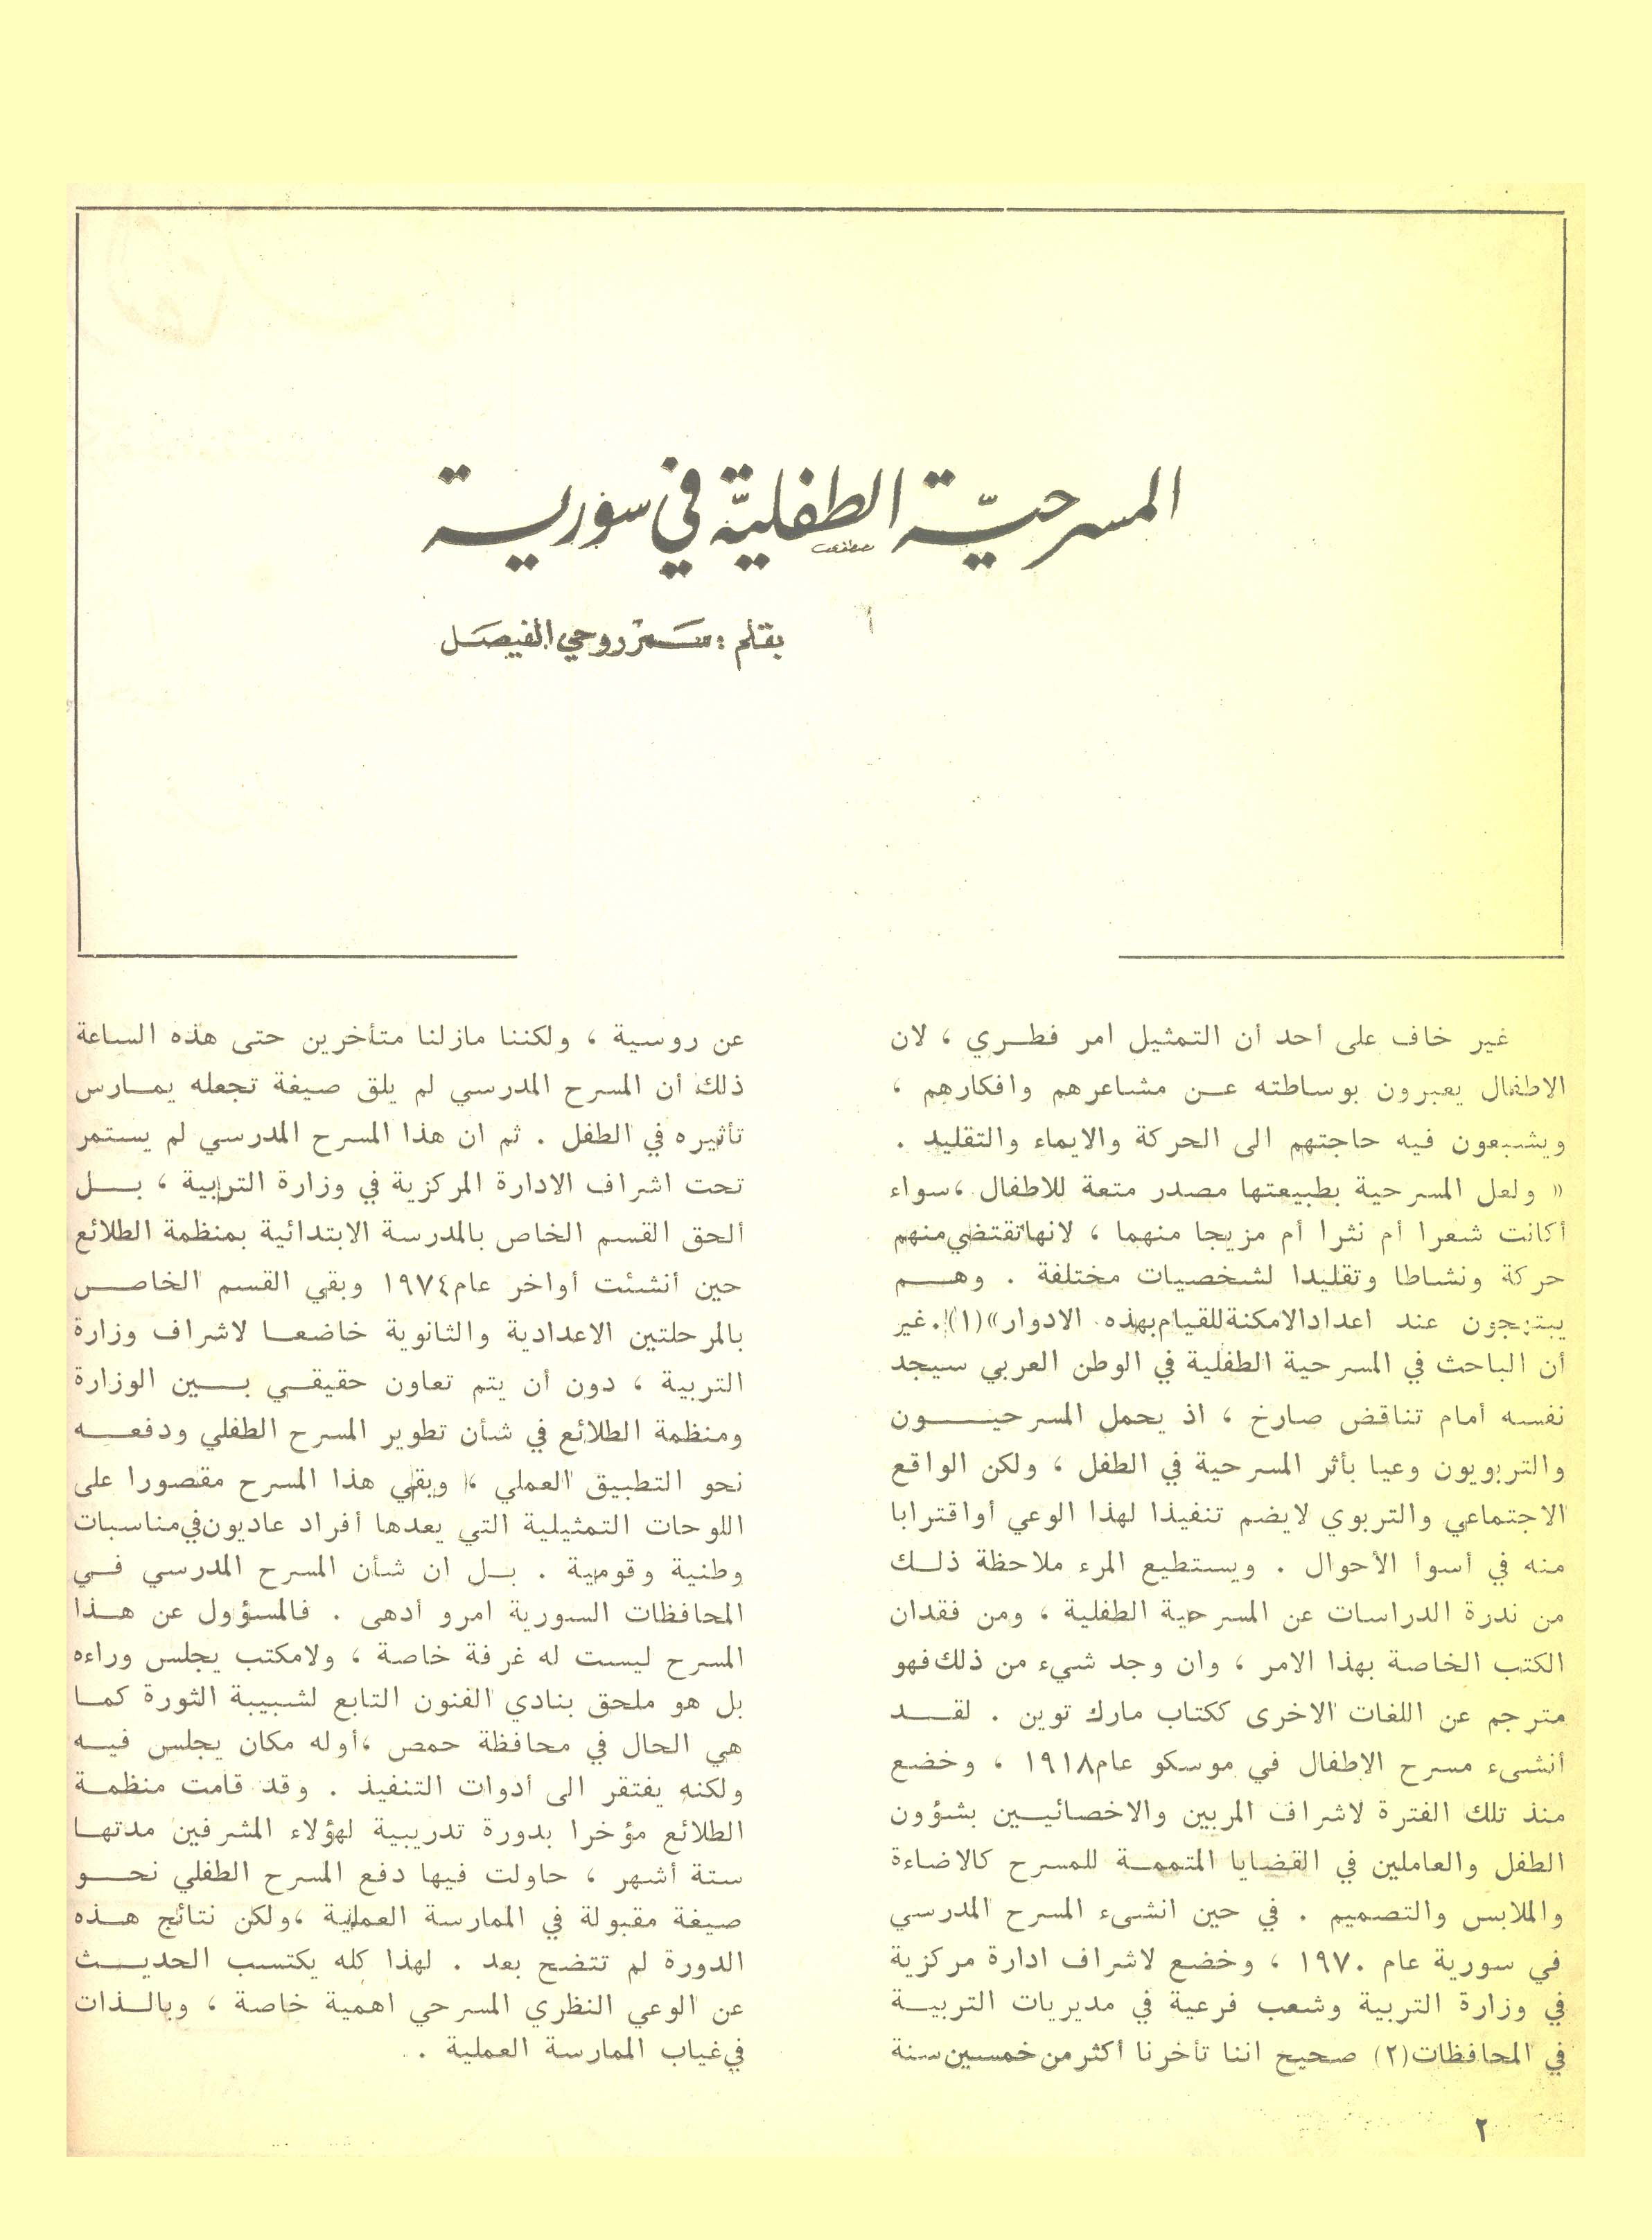 المسرحيّة الطفليّة في سورية
بقلم : سَمر روحي الفيصَل
غير خاف على أحد أن التمثيل امر فطري ، لان
الاطفال يعبرون بوساطته عن مشاعرهم وافكارهم ،
ويشبعون فيه حاجتهم الى الحركة والايماء والتقليد .
« ولعل المسرحية بطبيعتها مصدر متعة للاطفال ،سواء
أكانت شعرا أم نثرا أم مزيجا منهما ، لانها تقتضي منهم
حركة ونشاطا وتقليدا لشخصيات مختلفة . وهم
يبتهجون عند اعداد الامكنة للقيام بهذه الادوار»(١).غير
أن الباحث في المسرحية الطفلية في الوطن العربي سيجد
نفسه أمام تناقض صارخ ، اذ يحمل المسرحيون
والتربويون وعيا بأثر المسرحية في الطفل ، ولكن الواقع
الاجتماعي والتربوي لايضم تنفيذا لهذا الوعي أواقترابا
منه في أسوأ الأحوال . ويستطيع المرء ملاحظة ذلك
من ندرة الدراسات عن المسرحية الطفلية ، ومن فقدان
الكتب الخاصة بهذا الامر ، وان وجد شيء من ذلك فهو
مترجم عن اللغات الاخرى ككتاب مارك توين . لقد
أنشىء مسرح الاطفال في موسكو عام ١٩١٨ ، وخضع
منذ تلك الفترة لاشراف المربين والاخصائيين بشؤون
الطفل والعاملين في القضايا المتممة للمسرح كالاضاءة
والملابس والتصميم . في حين انشىء المسرح المدرسي
في سورية عام ١٩٧٠ ، وخضع لاشراف ادارة مركزية
في وزارة التربية وشعب فرعية في مديريات التربية
في المحافظات(٢) صحيح اننا تأخرنا أكثر من خمسين سنة
عن روسية ، ولكننا مازلنا متأخرين حتى هذه الساعة
ذلك أن المسرح المدرسي لم يلق صيغة تجعله يمارس
تأثيره في الطفل . ثم ان هذا المسرح المدرسي لم يستمر
تحت اشراف الادارة المركزية في وزارة التربية ، بل
ألحق القسم الخاص بالمدرسة الابتدائية بمنظمة الطلائع
حين أنشئت أواخر عام ١٩٧٤ وبقي القسم الخاص
بالمرحلتين الاعدادية والثانوية خاضعا لاشراف وزارة
التربية ، دون أن يتم تعاون حقيقي بين الوزارة
ومنظمة الطلائع في شأن تطوير المسرح الطفلي ودفعه
نحو التطبيق العملي ، وبقي هذا المسرح مقصورا على
اللوحات التمثيلية التي يعدها أفراد عاديون في مناسبات
وطنية وقومية . بل ان شأن المسرح المدرسي في
المحافظات السورية امر و أدهى . فالمسؤول عن هذا
المسرح ليست له غرفة خاصة ، ولامكتب يجلس وراءه
بل هو ملحق بنادي الفنون التابع لشبيبة الثورة كما
هي الحال في محافظة حمص ،أوله مكان يجلس فيه
ولكنه يفتقر الى أدوات التنفيذ . وقد قامت منظمة
الطلائع مؤخرا بدورة تدريبية لهؤلاء المشرفين مدتها
ستة أشهر ، حاولت فيها دفع المسرح الطفلي نحو
صيغة مقبولة في الممارسة العملية ،ولكن نتائج هذه
الدورة لم تتضح بعد . لهذا كله يكتسب الحديث
عن الوعي النظري المسرحي اهمية خاصة ، وبالذات
في غياب الممارسة العملية .
٢